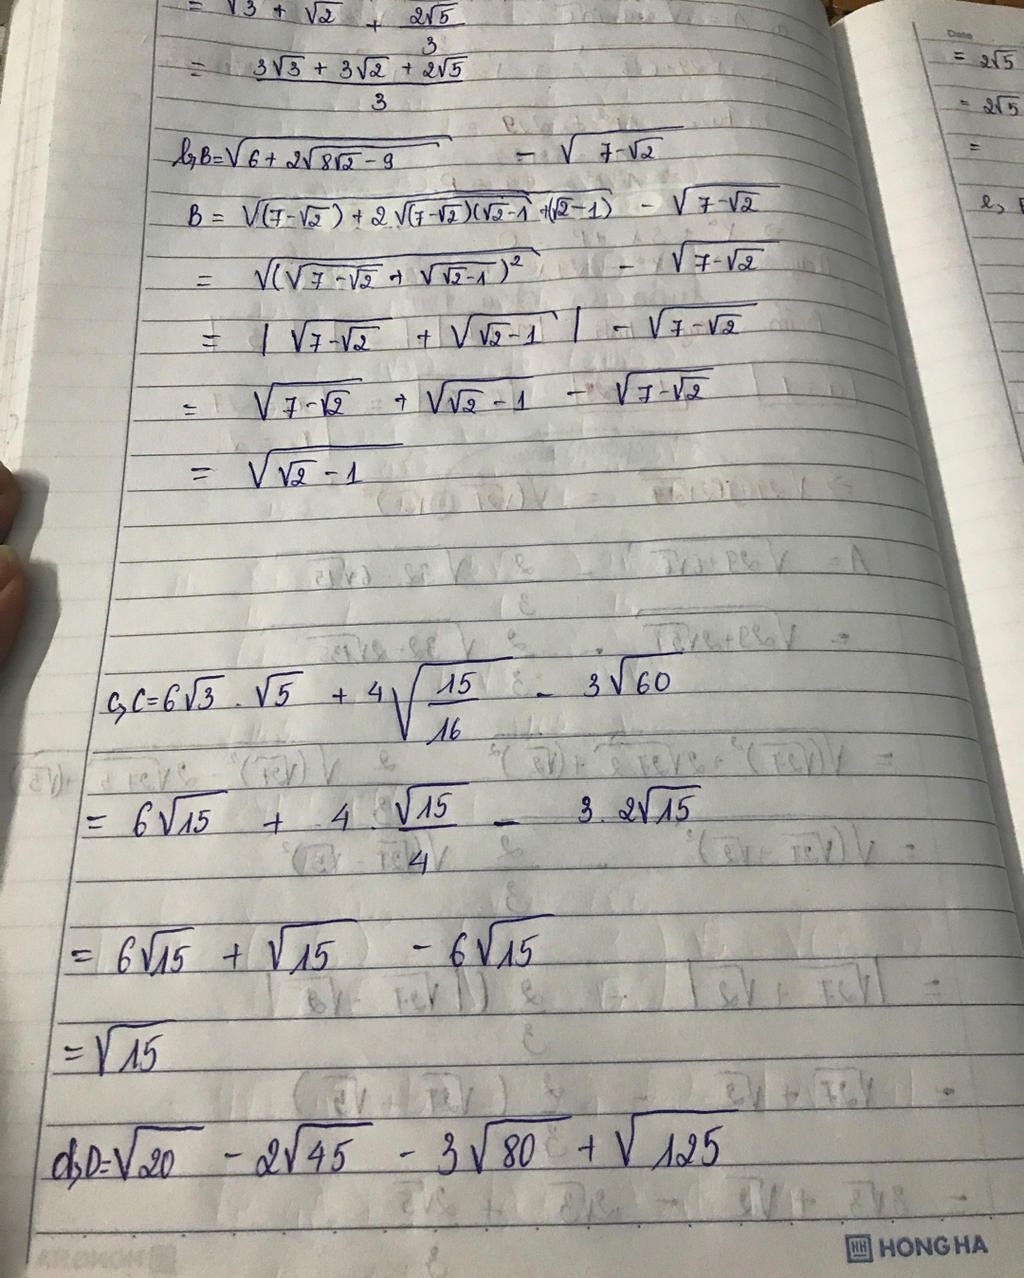 = √3 + √2 + 2√5/3
= (3√3 + 3√2 + 2√5)/3
b, B = √(6 + 2√(8√2 - 9)) - √(7-√2)
B = √((7-√2) + 2.√((7-√2)(√2-1)) + (√2-1)) - √(7-√2)
= √((√(7-√2) + √(√2-1))²) - √(7-√2)
= |√(7-√2) + √(√2-1)| - √(7-√2)
= √(7-√2) + √(√2-1) - √(7-√2)
= √(√2-1)
c, C = 6√3 . √5 + 4√(15/16) - 3√60
= 6√15 + 4 . √15/4 - 3. 2√15
= 6√15 + √15 - 6√15
= √15
d, D = √20 - 2√45 - 3√80 + √125
HH HONG HA
Date
= 2√5
= 2√5
=
e,